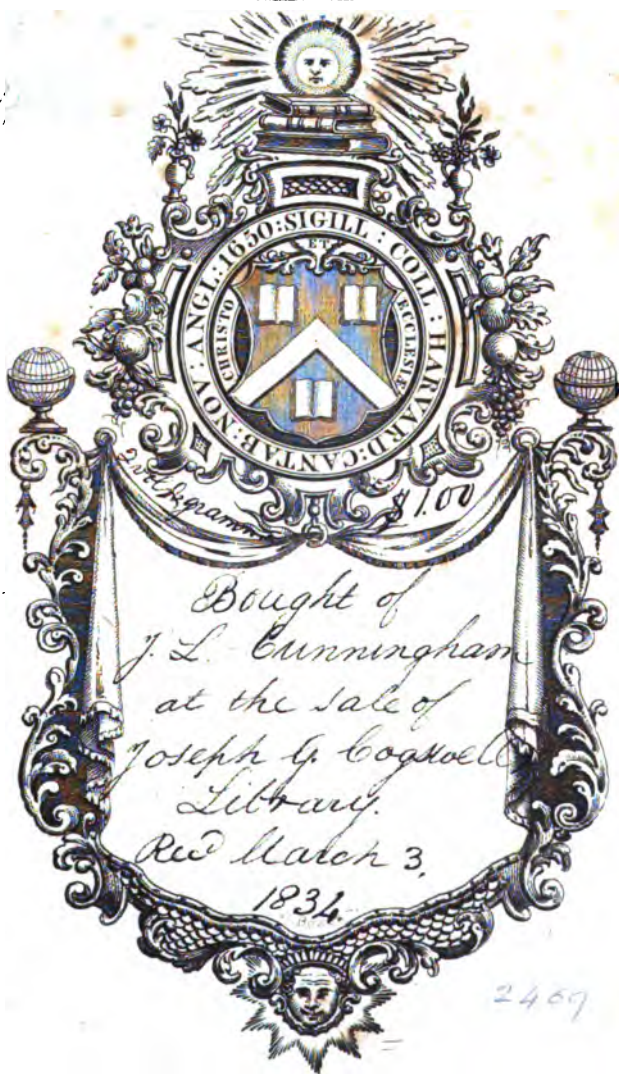 SIGILL : COLL : HARVARD : CANTAB : NOV : ANGL : 1650 :
CHRISTO ET ECCLESIÆ
$1.00
Bought of
J. L. Cunningham
at the sale of
Joseph G. Cogswell
Library.
Rec'd March 3,
1834.
2469